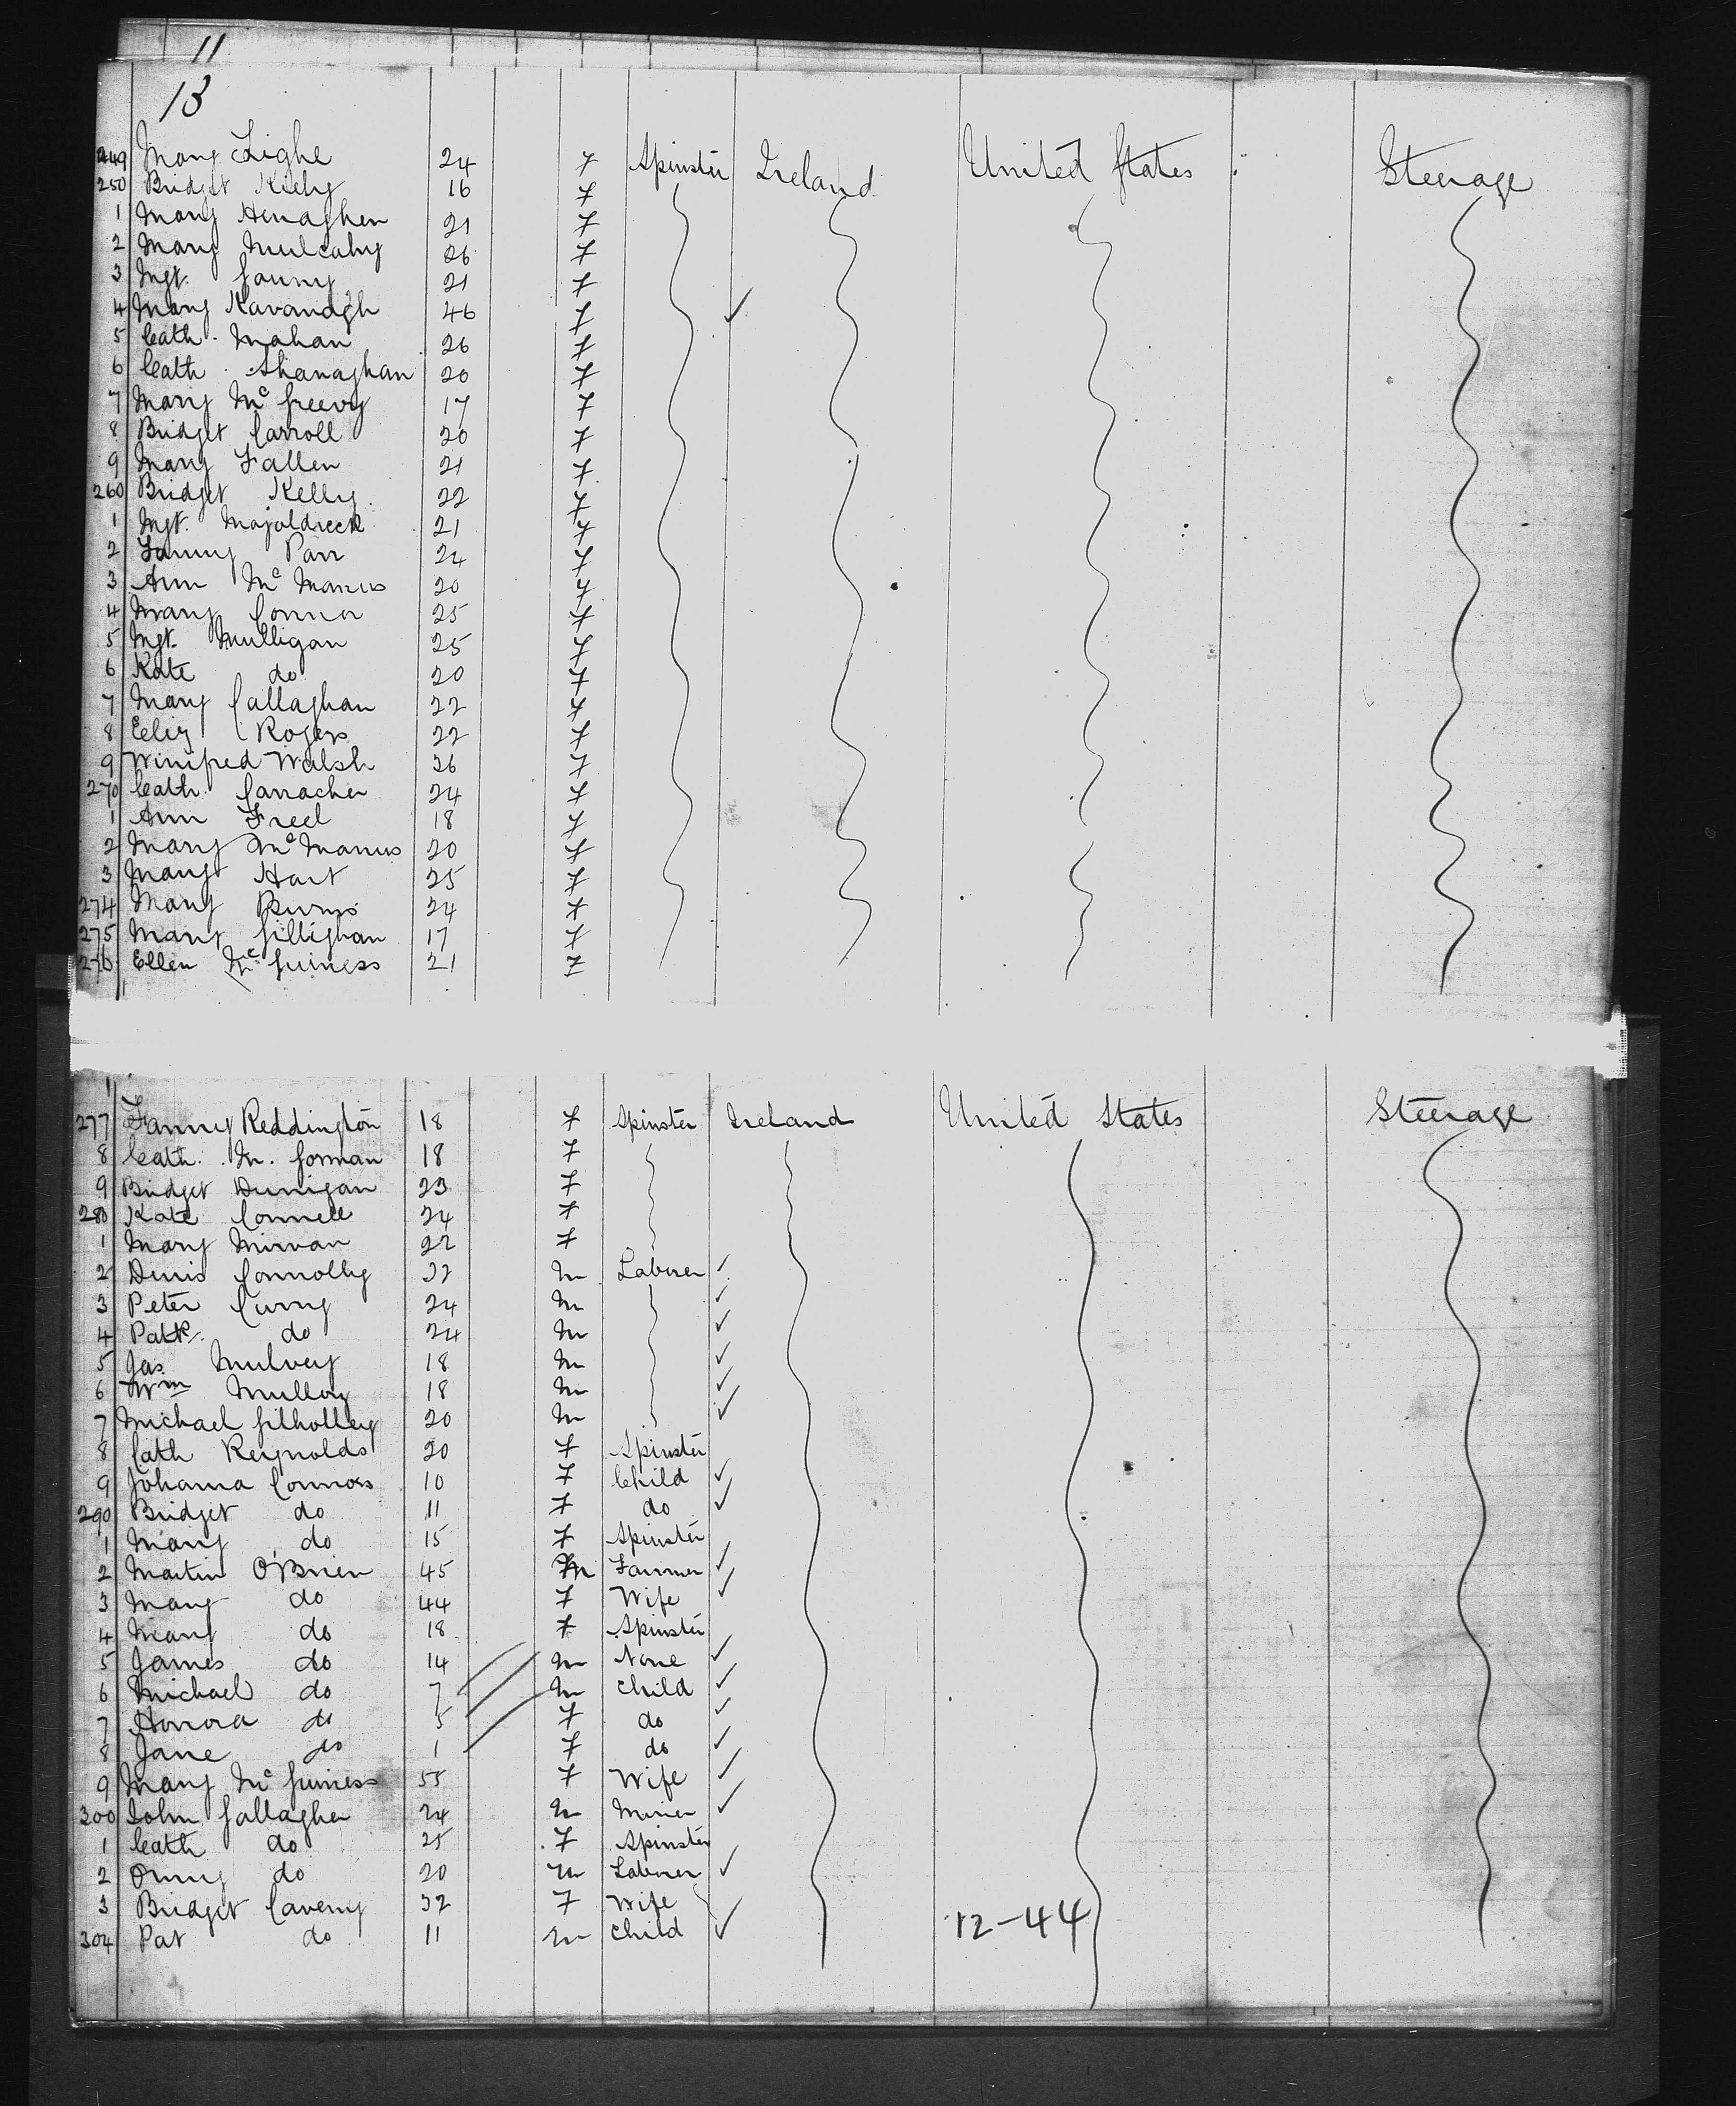 11
13
249 Mary Tighe 24 F Spinster Ireland United States Steerage
250 Bridget Kielty 16 F
1 Mary Henaghen 21 F
2 Mary Mulcahy 26 F
3 Mgt. 21 F
4 Mary Kavanagh 46 F ✓
5 Cath. Mahan 26 F
6 Cath Shanaghan 20 F
7 Mary McGreevy 17 F
8 Bridget Carroll 20 F
9 Mary Fallen 21 F
260 Bridget Kelly 22 F
1 Mgt. Magoldrick 21 F
2 Fanny Parr 24 F
3 Ann McManus 20 F
4 Mary Connor 25 F
5 Mgt. Mulligan 25 F
6 Kate do 20 F
7 Mary Callaghan 22 F
8 Eliz Rogers 22 F
9 Winifred Walsh 26 F
270 Cath. Carracher 24 F
1 Ann Freel 18 F
2 Mary McManus 20 F
3 Margt Hart 25 F
274 Mary Burns 24 F
275 Mary Gillighan 17 F
276 Ellen McGuiness 21 F
277 Fanny Reddington 18 F Spinster Ireland United States Steerage
8 Cath. M. Gorman 18 F
9 Bridget Dunigan 23 F
280 Kate Connell 24 F
1 Mary Mirvan 22 F
2 Denis Connolly 32 M Laborer ✓
3 Peter Curry 24 M ✓
4 Patk. do 24 M ✓
5 Jas. Mulvey 18 M ✓
6 Wm Mulloy 18 M ✓
7 Michael Gilholley 20 M ✓
8 Cath Reynolds 20 F Spinster
9 Johanna Connors 10 F Child ✓
290 Bridget do 11 F do ✓
1 Mary do 15 F Spinster
2 Martin O'Brien 45 M Farmer ✓
3 Mary do 44 F Wife ✓
4 Mary do 18 F Spinster
5 James do 14 M None ✓
6 Michael do 7 M Child ✓
7 Honora do 5 F do ✓
8 Jane do 1 F do ✓
9 Mary McGuiness 55 F Wife ✓
300 John Gallagher 24 M Miner ✓
1 Cath do 25 F Spinster
2 do 20 M Laborer ✓
3 Bridget Caveny 32 F Wife
304 Pat do 11 M Child ✓
12-44